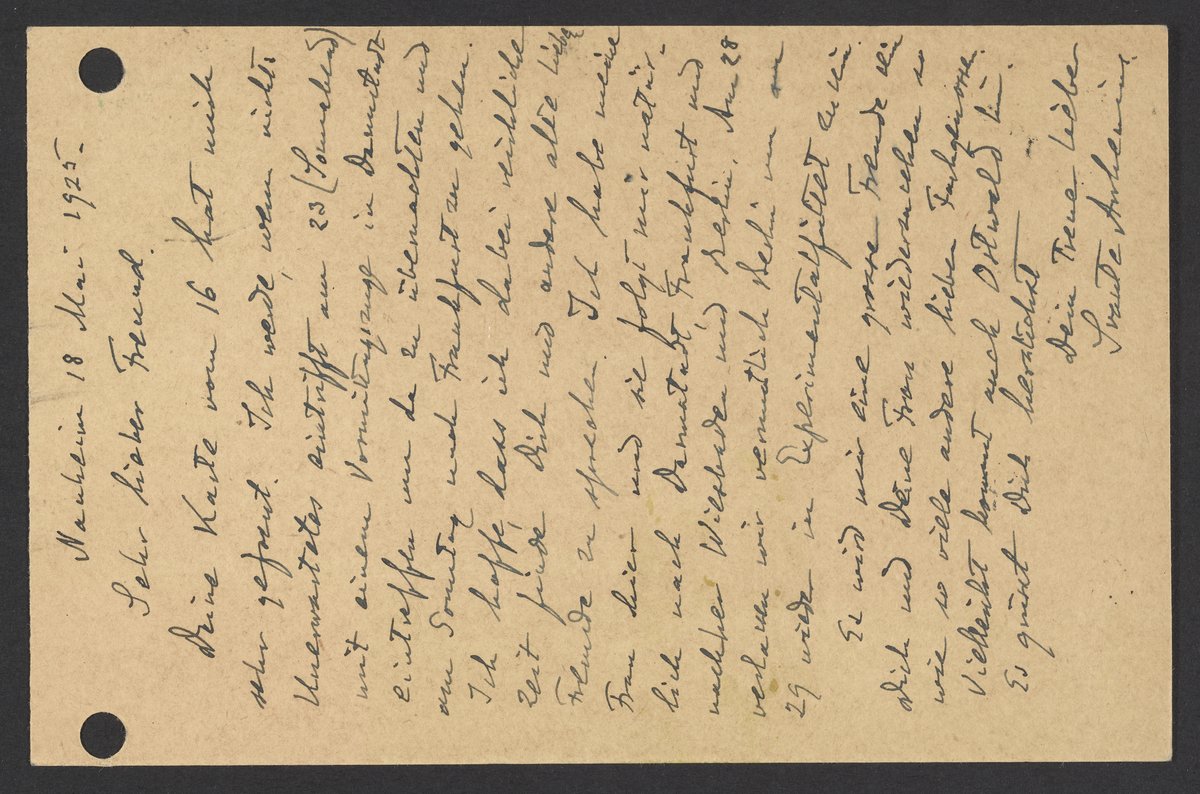 Nauheim 18 Mai 1925.
Sehr lieber Freund.
Deine Karte vom 16 hat mich
sehr gefreut. Ich werde, wenn nicht
Unerwartetes eintrifft am 23 (Sonnabend)
mit einem Vormittagszuge in Darmstadt
eintreffen um da zu übernachten und
am Sonntag nach Frankfurt zu gehen.
Ich hoffe, dass ich dabei reichliche
Zeit finde, Dich und andere alte liebe
Freunde zu sprechen. Ich habe meine
Frau hier und sie folgt mir natür-
lich nach Darmstadt, Frankfurt und
nachher Wiesbaden und Berlin. Am 28
verlassen wir vermutlich Berlin um am
29 wieder in Experimentalfältet zu sein.
Es wird mir eine grosse Freude sein
Dich und Deine Frau wiederzusehen so
wie so viele andere lieben Fachgenossen.
Vielleicht kommt auch Ostwald hin.
Es grüsst Dich herzlichst
Dein Treue lieber
Svante Arrhenius.